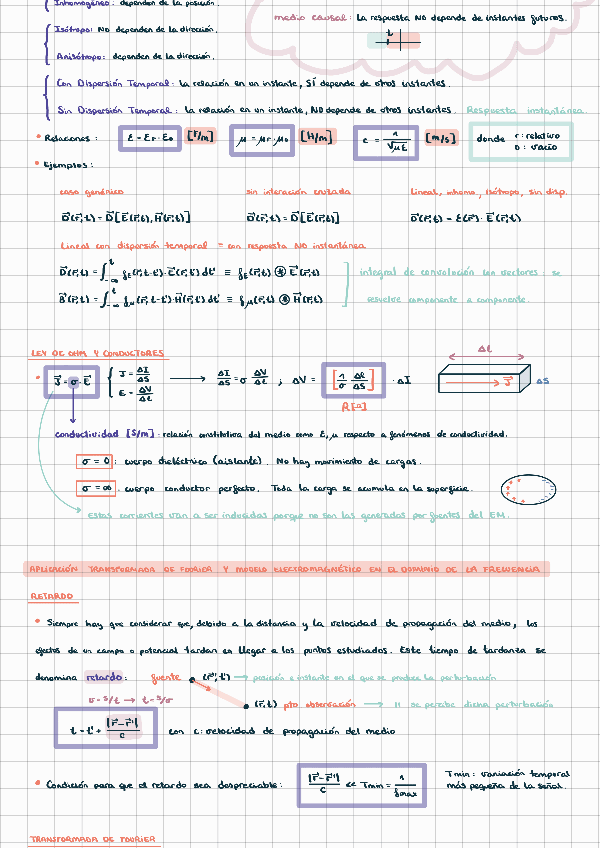 Inhomogéneo: dependen de la posición.
medio causal: La respuesta NO depende de instantes futuros.
t
Isótropo: NO dependen de la dirección.
Anisótropo: dependen de la dirección.
Con Dispersión Temporal: la relación en un instante, SÍ depende de otros instantes.
Sin Dispersión Temporal: La relación en un instante, NO depende de otros instantes. Respuesta instantánea.
• Relaciones: ε = εr·ε0 [F/m] μ = μr·μ0 [H/m] c = 1/√με [m/s] donde r: relativo
0: vacío
• Ejemplos:
caso genérico sin interacción cruzada Lineal, inhomo, isótropo, sin disp.
D(r,t) = D[E(r,t), H(r,t)] D(r,t) = D[E(r,t)] D(r,t) = ε(r)·E(r,t)
Lineal con dispersión temporal = con respuesta NO instantánea
D(r,t) = ∫_-∞^t fε(r,t-t')·E(r,t')dt' ≡ fε(r,t) ⊛ E(r,t) integral de convolución con vectores: se
B(r,t) = ∫_-∞^t fμ(r,t-t')·H(r,t')dt' ≡ fμ(r,t) ⊛ H(r,t) resuelve componente a componente.
LEY DE OHM Y CONDUCTORES
Δl
• J = σ·E J = ΔI/ΔS E = ΔV/Δl → ΔI/ΔS = σ ΔV/Δl ; ΔV = [1/σ Δl/ΔS] · ΔI J ΔS
R[Ω]
conductividad [S/m]: relación constitutiva del medio como ε, μ respecto a fenómenos de conductividad.
σ = 0: cuerpo dieléctrico (aislante). No hay movimiento de cargas.
σ = ∞. cuerpo conductor perfecto. Toda la carga se acumula en la superficie.
Estas corrientes van a ser inducidas porque no son las generadas por fuentes del EM.
APLICACIÓN TRANSFORMADA DE FOURIER Y MODELO ELECTROMAGNÉTICO EN EL DOMINIO DE LA FRECUENCIA
RETARDO
• Siempre hay que considerar que, debido a la distancia y la velocidad de propagación del medio, los
efectos de un campo o potencial tardan en llegar a los puntos estudiados. Este tiempo de tardanza se
denomina retardo: fuente (r',t') → posición e instante en el que se produce la perturbación
v=s/t → t=s/v
(r,t) pto observación → 11 se percibe dicha perturbación
t = t' + |r-r'|/c con c: velocidad de propagación del medio
• Condición para que el retardo sea despreciable: |r-r'|/c << Tmin = 1/fmax Tmin: variación temporal
más pequeña de la señal.
TRANSFORMADA DE FOURIER